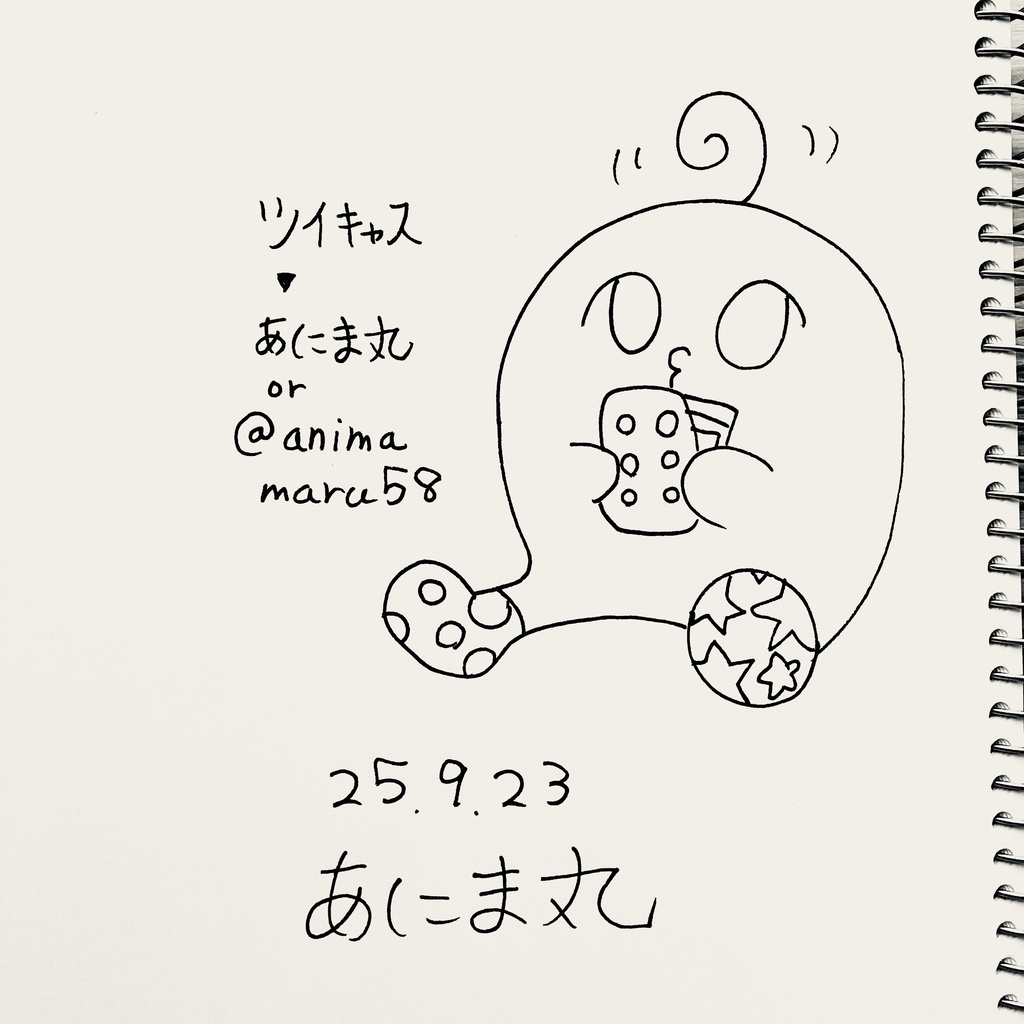 ツイキャス
▼
あにま丸
or
@anima
maru58
25.9.23
あにま丸